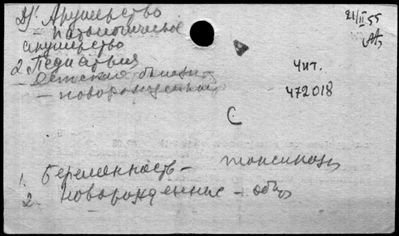 Акушерство
– патологическое
акушерство
2. Педиатрия
– детские болезни
– новорожденных
21/II 55
Чит.
472018
С
1. Беременность – токсикозы
2. Новорожденные – общ